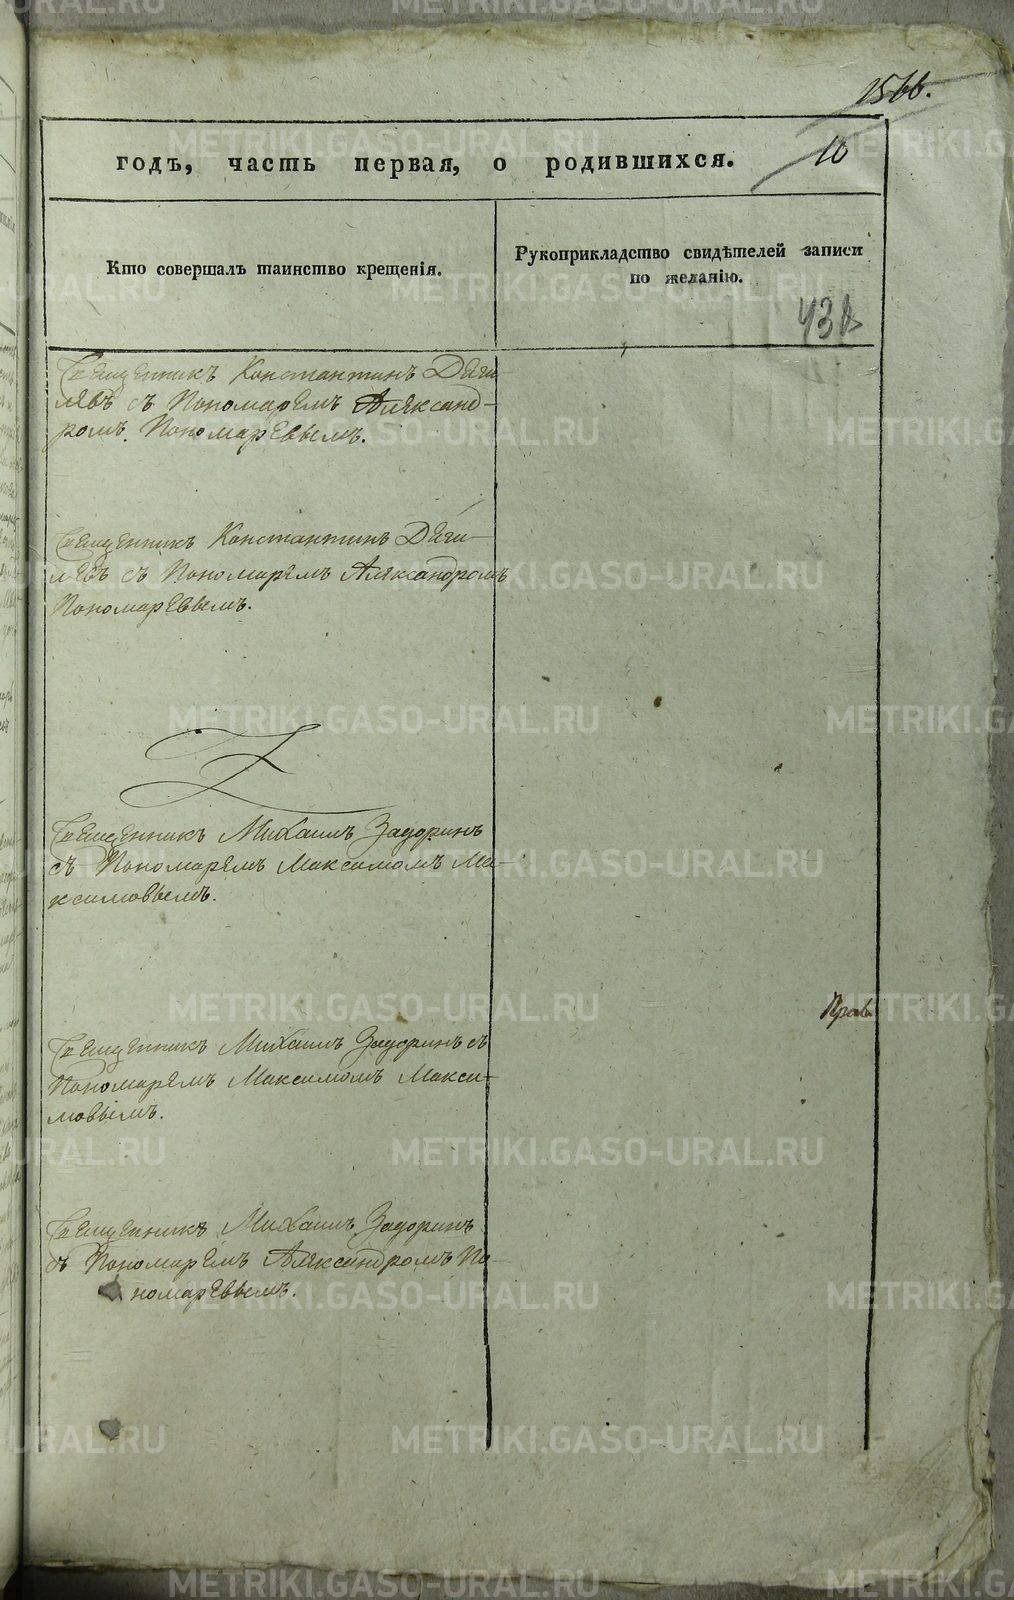 1566.
годъ, часть первая, о родившихся.
10
Кто совершалъ таинство крещенія.
Рукоприкладство свидѣтелей записи
по желанію.
Священникъ Константинъ Дяги-
левъ съ Пономаремъ Александ-
ромъ Пономаревымъ.
Священникъ Константинъ Дяги-
левъ съ Пономаремъ Александромъ
Пономаревымъ.
Священникъ Михаилъ Задоринъ
съ Пономаремъ Максимомъ Ма-
ксимовымъ.
Прав
Священникъ Михаилъ Задоринъ съ
Пономаремъ Максимомъ Макси-
мовымъ.
Священникъ Михаилъ Задоринъ
съ Пономаремъ Александромъ По-
номаревымъ.
METRIKI.GASO-URAL.RU